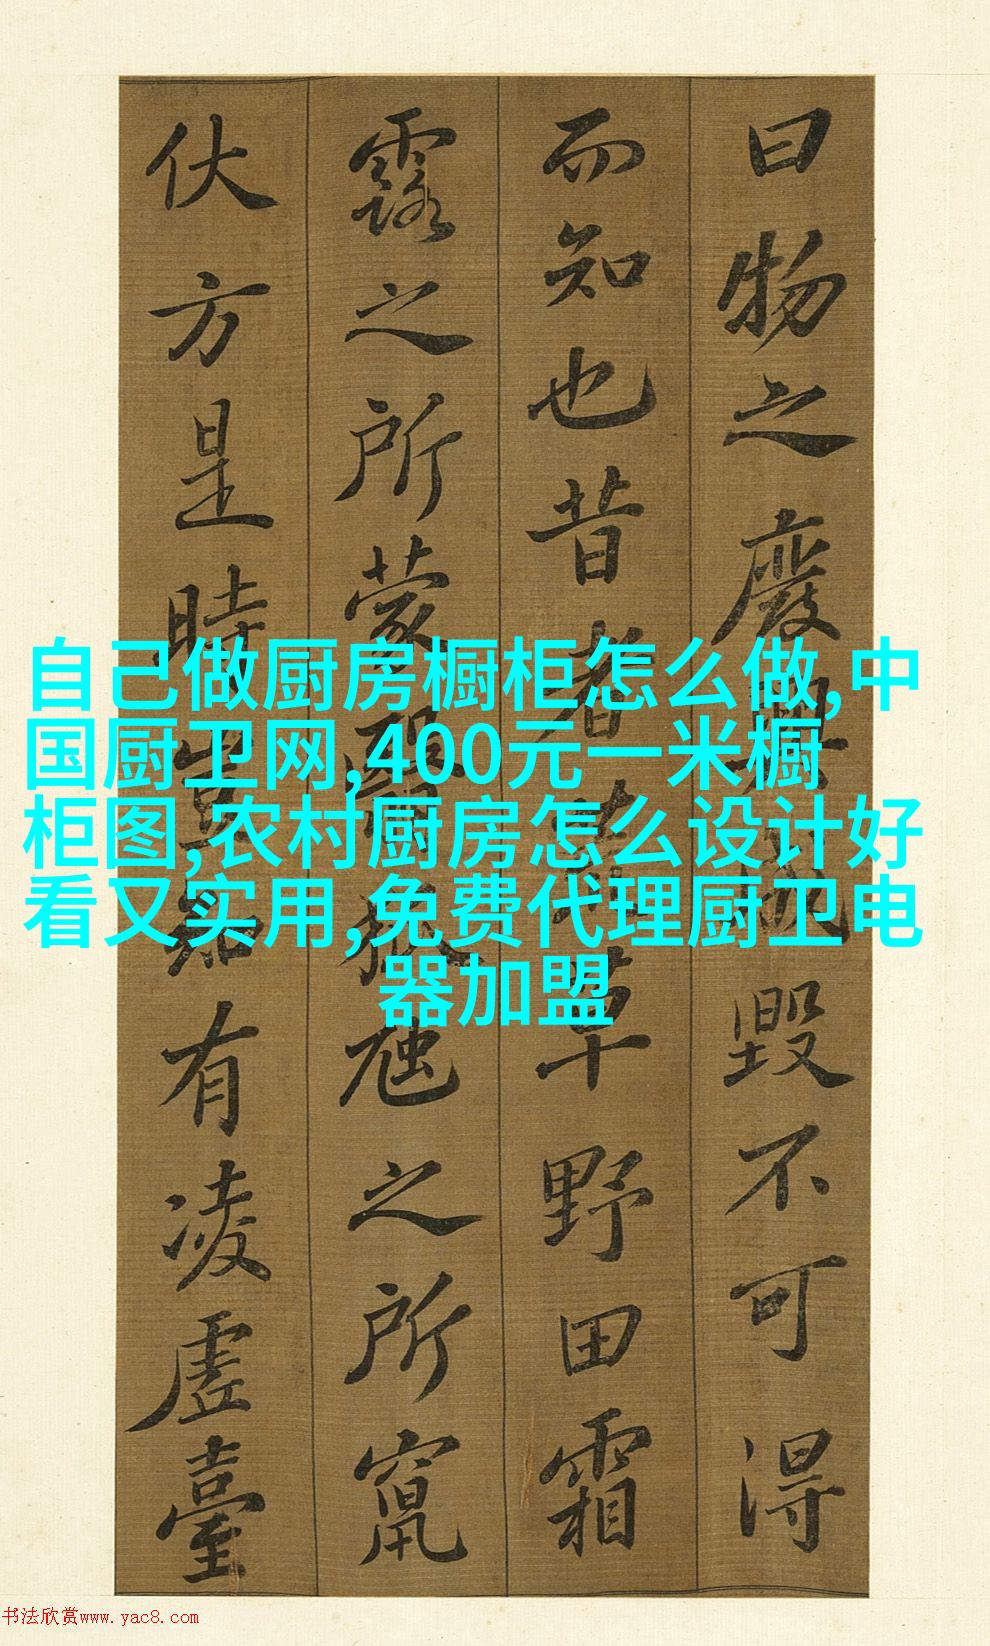 曰物之廢興成毀不可得
而知也昔者荒草野田霜
露之所蒙翳狐虺之所竄
伏方是時豈知有凌虛臺
自己做厨房橱柜怎么做,中
国厨卫网,400元一米橱
柜图,农村厨房怎么设计好
看又实用,免费代理厨卫电
器加盟
书法欣赏www.yac8.com